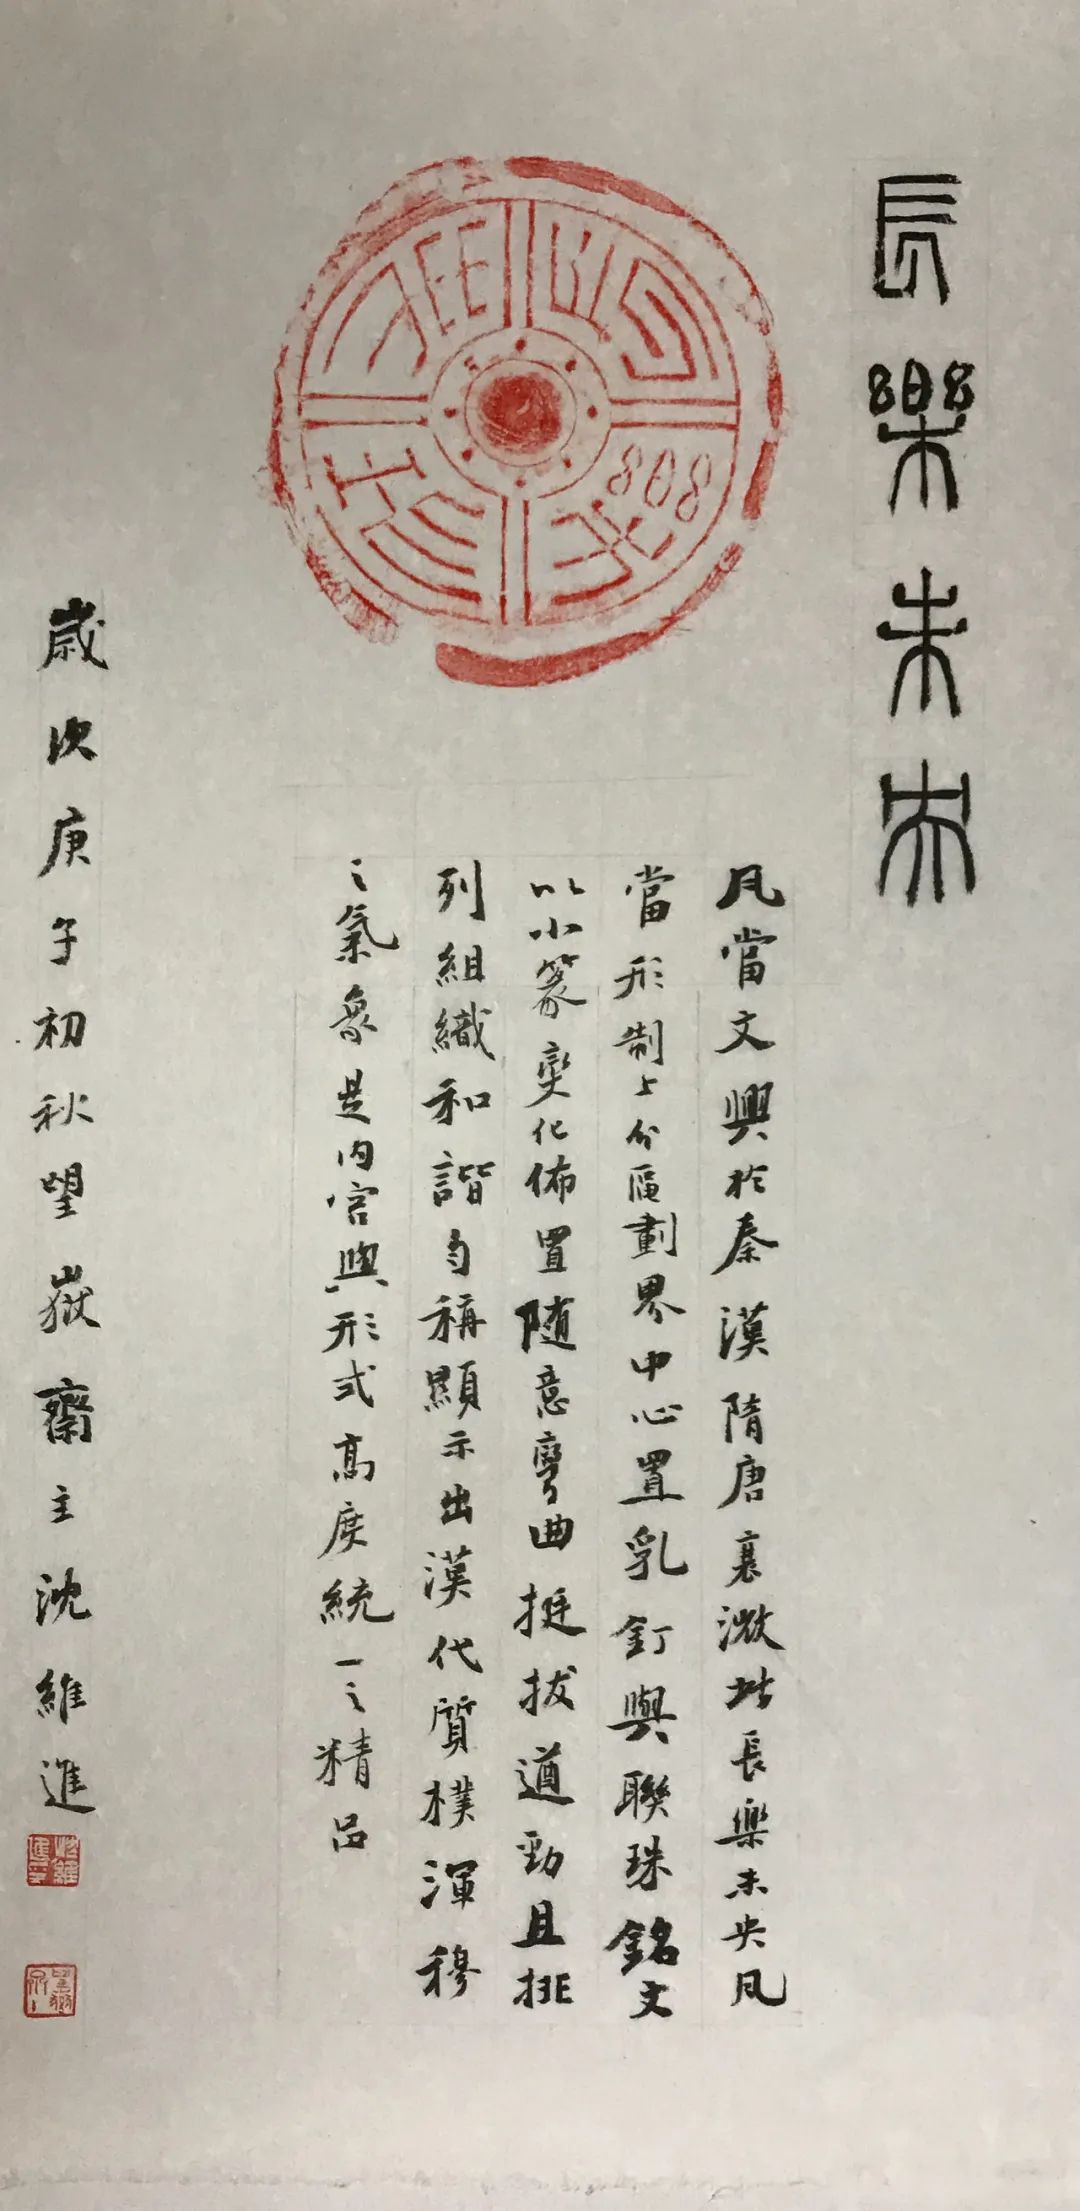 長樂未央
瓦當文興於秦漢隋唐衰微此長樂未央瓦
當形制上分區劃界中心置乳釘與聯珠銘文
以小篆變化佈置随意彎曲挺拔遒勁且排
列組織和諧勻稱顯示出漢代質樸渾穆
之氣象是内容與形式高度統一之精品
歲次庚子初秋望嶽齋主沈維進